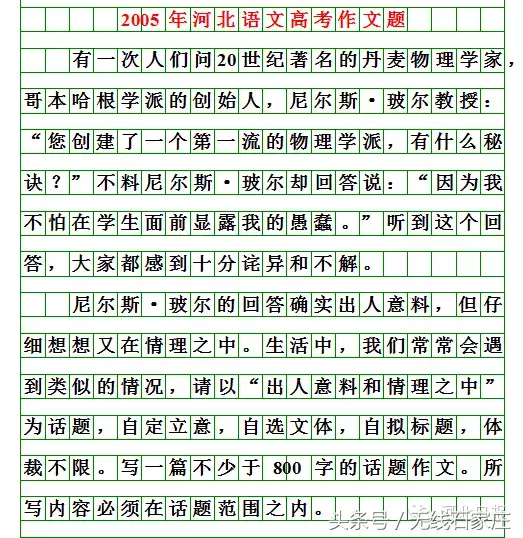 2005年河北语文高考作文题
有一次人们问20世纪著名的丹麦物理学家，
哥本哈根学派的创始人，尼尔斯·玻尔教授：
“您创建了一个第一流的物理学派，有什么秘
诀？”不料尼尔斯·玻尔却回答说：“因为我
不怕在学生面前显露我的愚蠢。”听到这个回
答，大家都感到十分诧异和不解。
尼尔斯·玻尔的回答确实出人意料，但仔
细想想又在情理之中。生活中，我们常常会遇
到类似的情况，请以“出人意料和情理之中”
为话题，自定立意，自选文体，自拟标题，体
裁不限。写一篇不少于800字的话题作文。所
写内容必须在话题范围之内。
头条号／无线石家庄